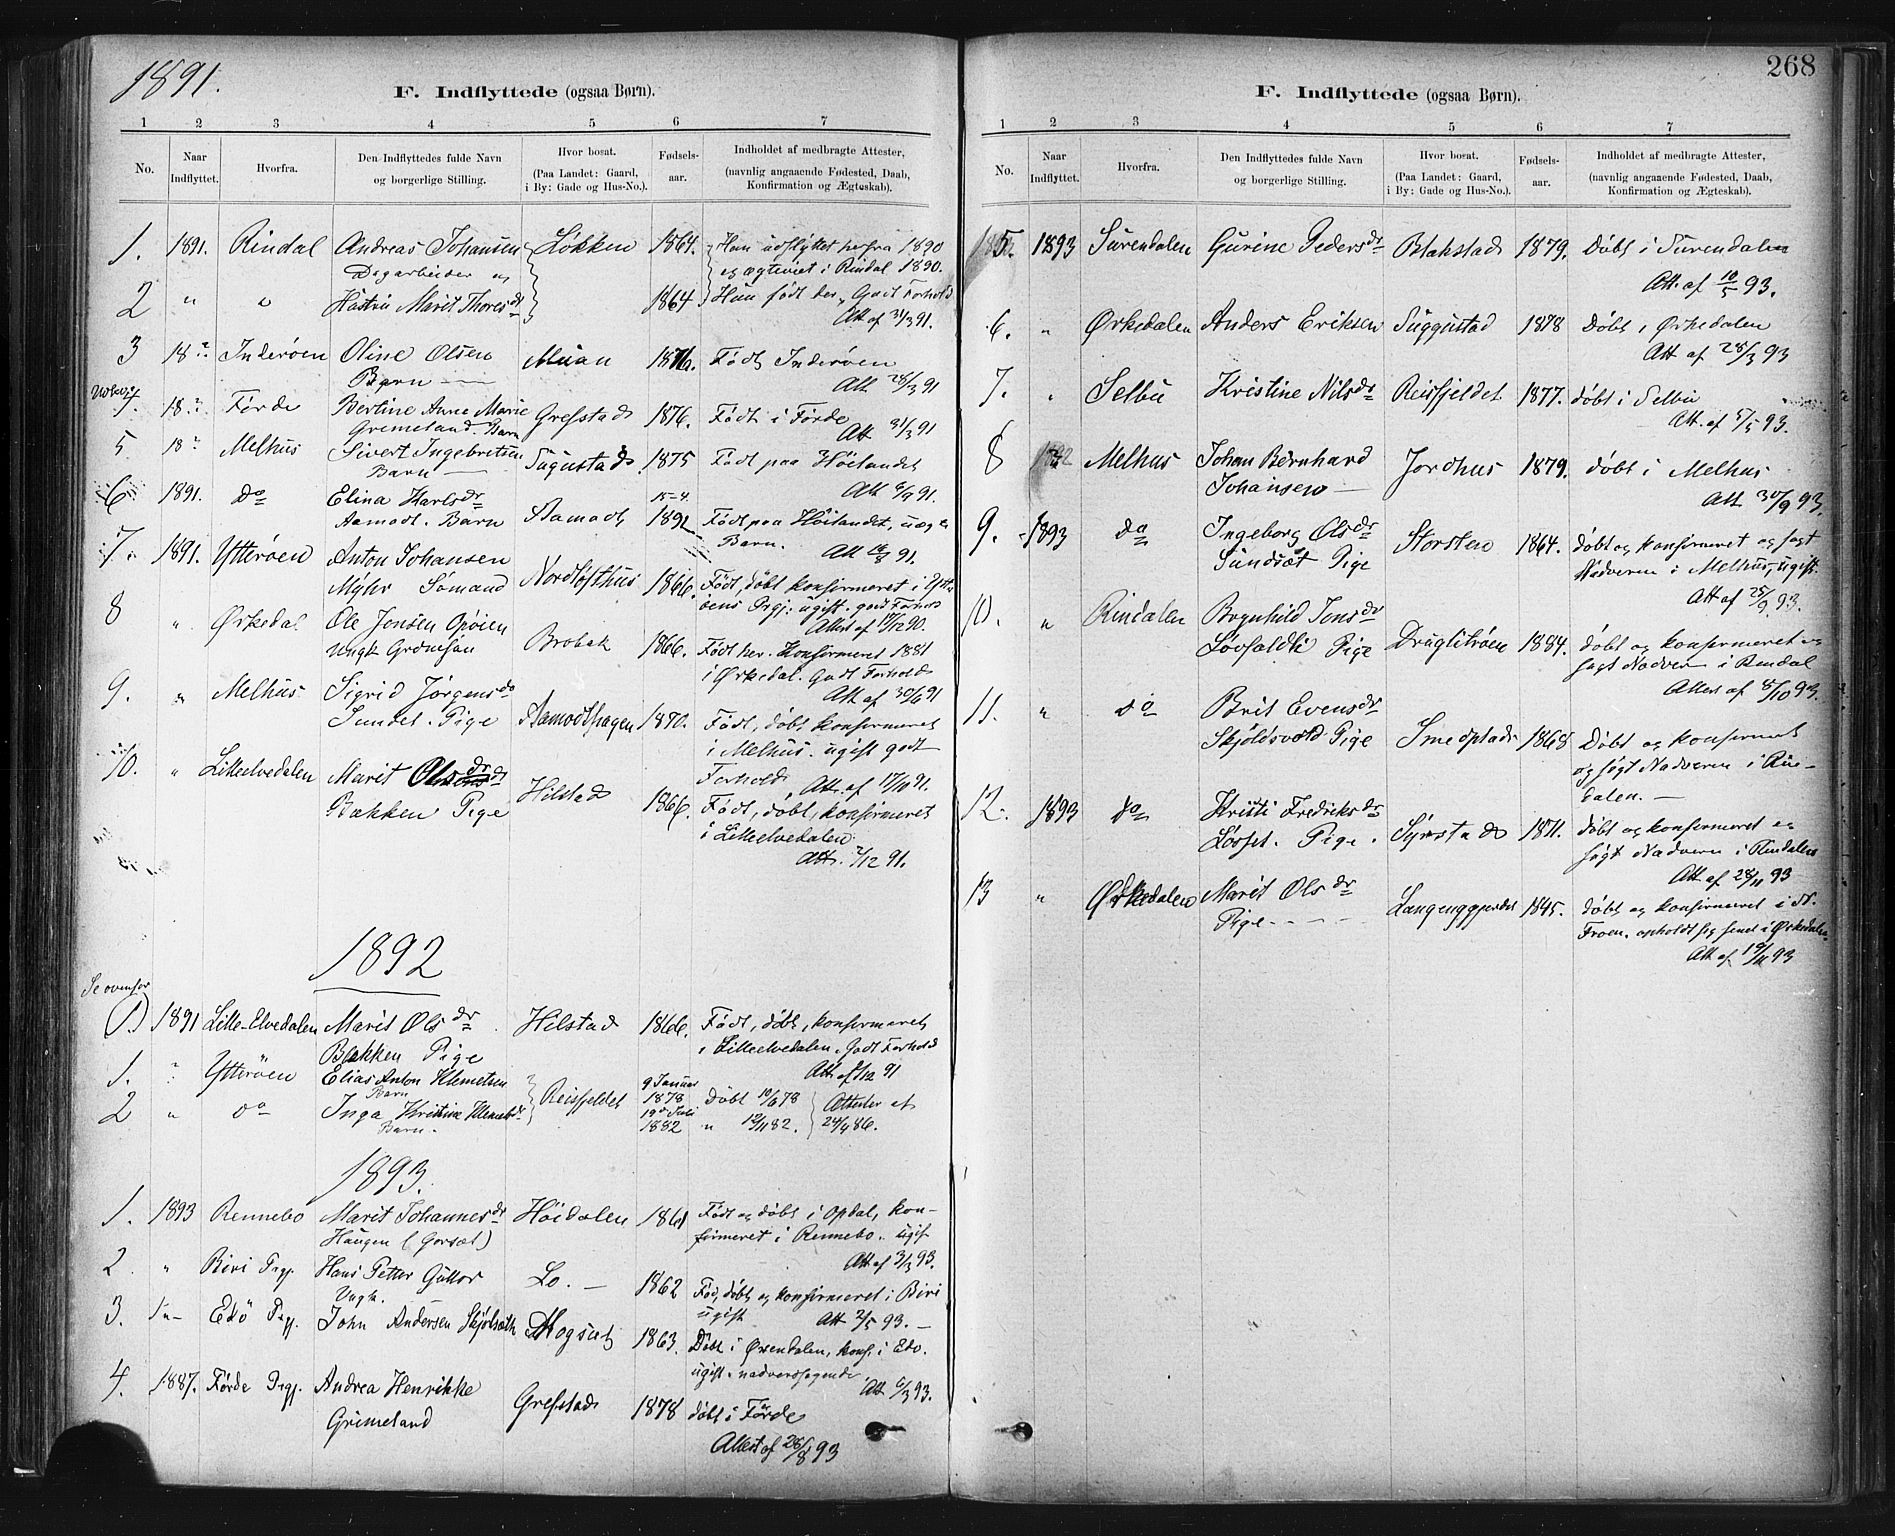 1891.
F. Indflyttede (ogsaa Børn).
1 2 3 4 5 6 7
No. Naar Indflyttet. Hvorfra. Den Indflyttedes fulde Navn og borgerlige Stilling. Hvor bosat. (Paa Landet: Gaard, i By: Gade og Hus-No.). Fødsels-aar. Indholdet af medbragte Attester, (navnlig angaaende Fødested, Daab, Konfirmation og Ægteskab).
1. 1891. Rindal Andreas Johansen Løkken 1864. Han udflyttet herfra 1890
Dagarbeider og
og ægteviet i Rindal 1890.
2 " " Hustru Marit Thoresdr 1864 Hun født her. Godt Forhold
Att af 31/3 91.
3 18" Inderøen Oline Olsen Muan 1876. Født Inderøen
Barn — Att 28/3 91
4. 18" Førde Bertine Anne Marie Grefstad 1876. Født i Førde
Grimeland. Barn Att 31/3 91
5. 18" Melhus Sivert Ingebretsen Sugustad 1875 Født paa Höilandet
Barn — Att 6/9 91.
6 1891. do Elina Karlsdr Aamodt 15-4. 1891 Født paa Höilandet, uæg
Aamodt. Barn
Barn. Att 91.
7. 1891. Ytterøen Anton Johansen Nordløfthus 1866. Født, døbt konfirmeret i Ytter
Myhr Sømand
øens Prgj. ugift. godt Forhold
Attest af 17/12 90.
8 " Ørkedal Ole Jonsen Opøien Brobak 1866. Født her. Konfirmeret 1881
Ungk
i Ørkedal. Godt Forhold
Att af 30/6 91
9. " Melhus Sigrid Jørgensdr Aamodthagen 1870. Født, døbt, konfirmeret
Sundet. Pige
i Melhus. ugift godt
Forhold. Att. af 17/10 91.
10. " Lilleelvedalen Marit Olsdr Hilstad 1866. Født, døbt, konfirmeret
Bakken Pige
i Lilleelvedalen
Att. 2/12 91.
1892
Se ovenfor
(1.) 1891 Lille-Elvedalen Marit Olsdr Hilstad 1866. Født, døbt, konfirmeret
Bakken Pige
i Lilleelvedalen. Godt Forhold
Att af 2/12 91
1. " Ytterøen Elias Anton Klemetsen Reisfjeldet 9 Januar 1878 Døbt 10/6 78 Attester af
Barn
2 " do Inga Kristine Klemetsdr 19de Juli 1882 " 12/11 82. 24/4 86.
Barn.
1893.
1. 1893 Rennebo Marit Johannesdr Höidalen 1861 Født og døbt i Opdal, kon-
Haugen (Gorsæt)
firmeret i Rennebo. ugift
Att af 3/3 93.
2 " Biri Prgj. Hans Petter Lo. — 1862 Fød, døbt og konfirmeret i Biri
Ungk.
ugift Att 2/5 93. —
3. Edö Prgj. John Andersen Mogset 1863. Døbt i Øxendalen, konf. i Edö.
ugift. nadversøgende
Att 6/3 93.
4. 1887. Førde Prgj. Andrea Henrikke Grefstad 1878 døbt i Førde
Grimeland
Attest af 28/8 93
268
F. Indflyttede (ogsaa Børn).
1 2 3 4 5 6 7
No. Naar Indflyttet. Hvorfra. Den Indflyttedes fulde Navn og borgerlige Stilling. Hvor bosat. (Paa Landet: Gaard, i By: Gade og Hus-No.). Fødsels-aar. Indholdet af medbragte Attester, (navnlig angaaende Fødested, Daab, Konfirmation og Ægteskab).
5. 1893 Surendalen Gurine Pedersdr Blakstad 1879. Døbt i Surendalen
Att. af 10/5 93.
6. " Ørkedalen Anders Eriksen Suggustad 1878 Døbt i Ørkedalen
Att af 28/3 93
7. " Selbu Kristine Nilsdr Reisfjeldet 1877. døbt i Selbu
Att. af 5/5 93.
8 Melhus Johan Bernhard Jordhus 1879. døbt i Melhus
Johansen — Att 30/9 93.
9. 1893 do Ingeborg Olsdr Storsten 1864. døbt og konfirmeret og søgt
Sundsæt Pige
Nadveren i Melhus, ugift.
Att af 25/9 93.
10. " Rindalen Brynhild Jonsdr Druglitrøen 1884. døbt og konfirmeret og
Løvfaldli Pige
søgt Nadver i Rindal
Attest af 8/10 93.
11. " do Brit Evensdr Smedplads 1868 Døbt og konfirmeret
Skjølsvold Pige
og søgt Nadveren i Rin-
dalen. —
12. 1893 do Kristi Fredriksdr Syrstad 1871. døbt og konfirmeret og
Løsset. Pige.
søgt Nadvern i Rindalen
Att af 28/11 93
13 " Ørkedalen Marit Olsdr 1845. døbt og konfirmeret i N.
Pige
Froen. opholdt sig senest i Ørkedalen.
Att af 19/11 93